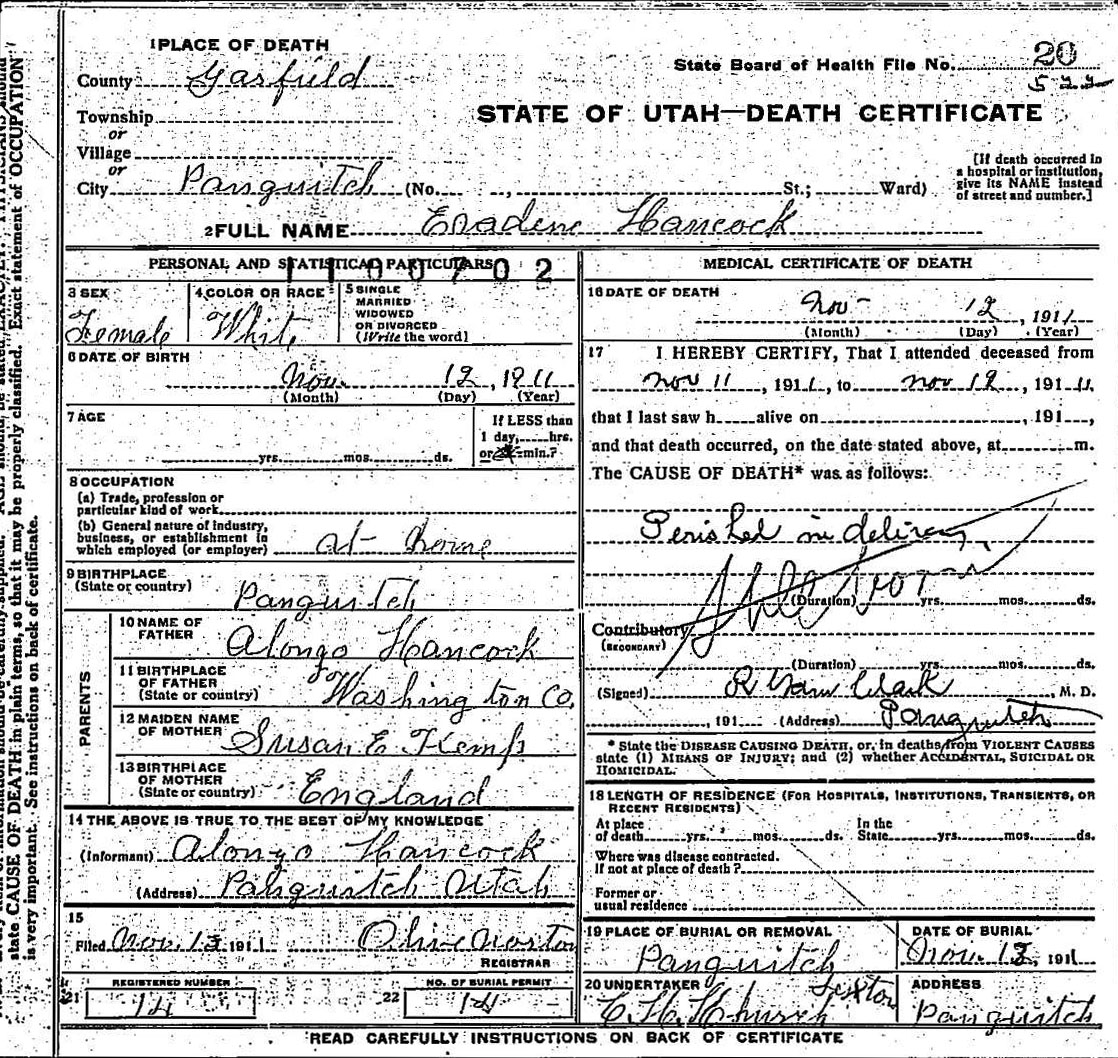 1 PLACE OF DEATH
County Garfield
State Board of Health File No. 20
522
STATE OF UTAH—DEATH CERTIFICATE
Township
or
Village
or
City Panguitch (No. , St.; Ward)
[If death occurred in
a hospital or institution,
give its NAME instead
of street and number.]
2 FULL NAME Eradene Hancock
PERSONAL AND STATISTICAL PARTICULARS
1100702
3 SEX
Female
4 COLOR OR RACE
White
5 SINGLE
MARRIED
WIDOWED
OR DIVORCED
(Write the word)
6 DATE OF BIRTH
Nov. 12, 1911
(Month) (Day) (Year)
7 AGE
If LESS than
1 day, hrs.
or min.?
yrs. mos. ds.
8 OCCUPATION
(a) Trade, profession or
particular kind of work
(b) General nature of industry,
business, or establishment in
which employed (or employer) at home
9 BIRTHPLACE
(State or country)
Panguitch
PARENTS
10 NAME OF
FATHER
Alonzo Hancock
11 BIRTHPLACE
OF FATHER
(State or country) Washington Co.
12 MAIDEN NAME
OF MOTHER
Susan E. Kemp
13 BIRTHPLACE
OF MOTHER
(State or country) England
14 THE ABOVE IS TRUE TO THE BEST OF MY KNOWLEDGE
(Informant) Alonzo Hancock
(Address) Panguitch Utah
15
Filed Nov. 13 1911 Olive Norton
REGISTRAR
21 REGISTERED NUMBER
14
22 NO. OF BURIAL PERMIT
14
MEDICAL CERTIFICATE OF DEATH
16 DATE OF DEATH
Nov 12, 1911
(Month) (Day) (Year)
17 I HEREBY CERTIFY, That I attended deceased from
Nov 11, 1911, to Nov 12, 1911
that I last saw h alive on , 191 ,
and that death occurred, on the date stated above, at m.
The CAUSE OF DEATH* was as follows:
Perished in delivery
(Duration) yrs. mos. ds.
Contributory
(SECONDARY)
(Duration) yrs. mos. ds.
(Signed) R Clark, M. D.
, 191 (Address) Panguitch
* State the DISEASE CAUSING DEATH, or, in deaths from VIOLENT CAUSES
state (1) MEANS OF INJURY; and (2) whether ACCIDENTAL, SUICIDAL OR
HOMICIDAL.
18 LENGTH OF RESIDENCE (FOR HOSPITALS, INSTITUTIONS, TRANSIENTS, OR
RECENT RESIDENTS)
At place In the
of death yrs. mos. ds. State yrs. mos. ds.
Where was disease contracted.
If not at place of death?
Former or
usual residence
19 PLACE OF BURIAL OR REMOVAL
Panguitch
DATE OF BURIAL
Nov. 13, 1911
20 UNDERTAKER Sexton
C. H. Church
ADDRESS
Panguitch
READ CAREFULLY INSTRUCTIONS ON BACK OF CERTIFICATE
state CAUSE OF DEATH in plain terms, so that it may be properly classified. Exact statement of OCCUPATION
is very important. See instructions on back of certificate.